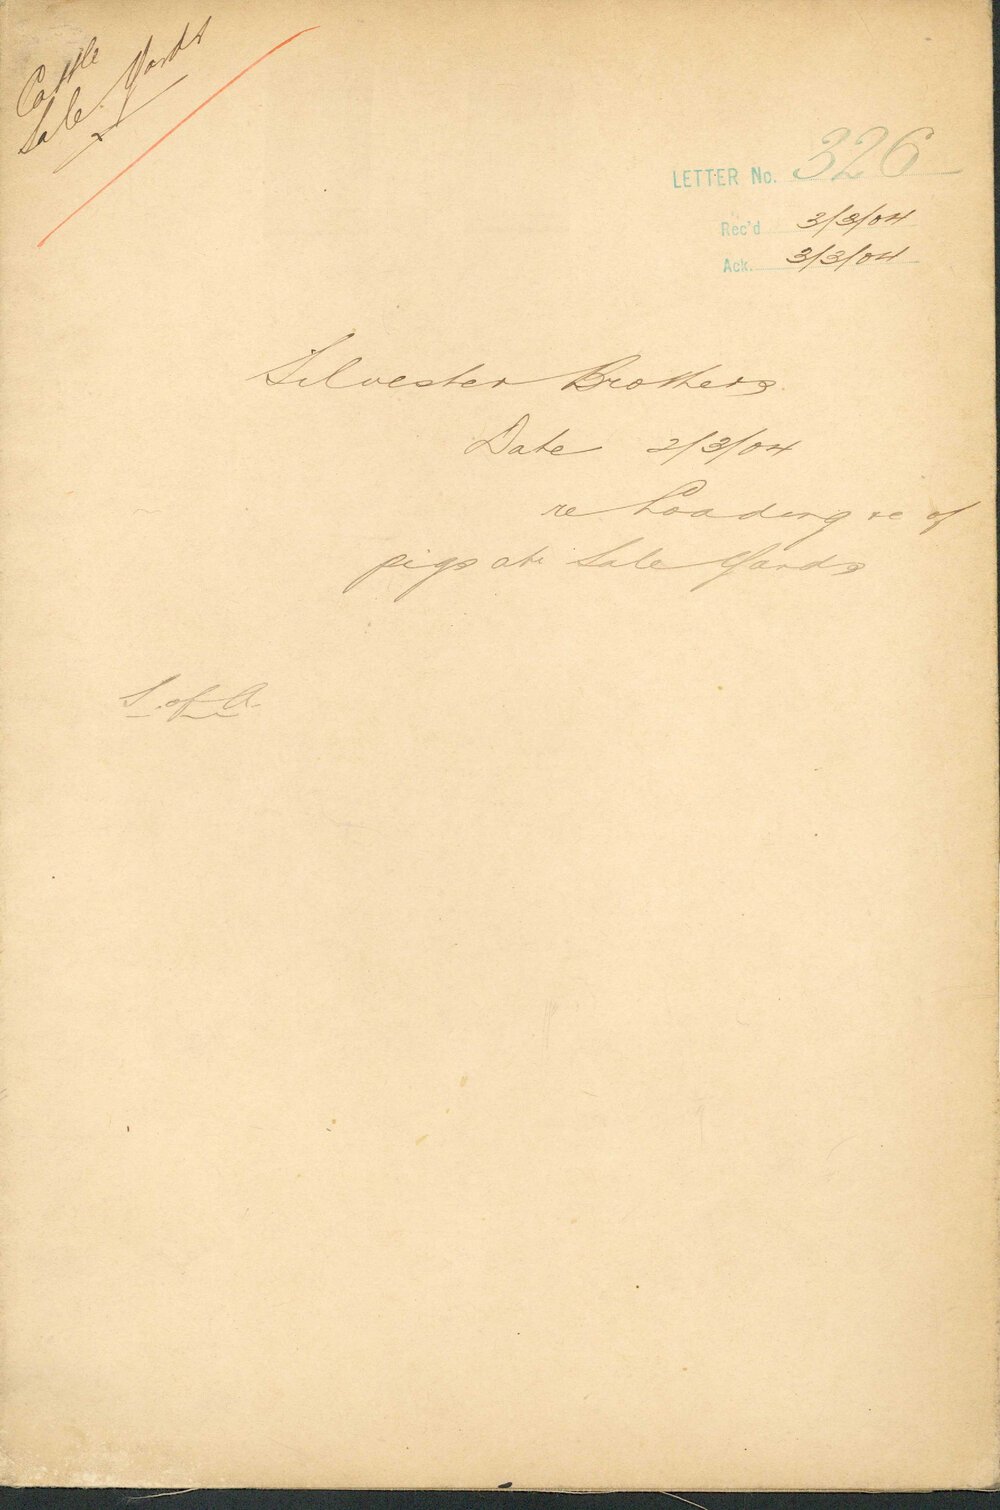 Cattle
Sale Yards
LETTER No. 326
Rec'd 3/3/04
Ack. 3/3/04
Silvester Brothers
Date 2/3/04
re Loading &c of
pigs at Sale Yards